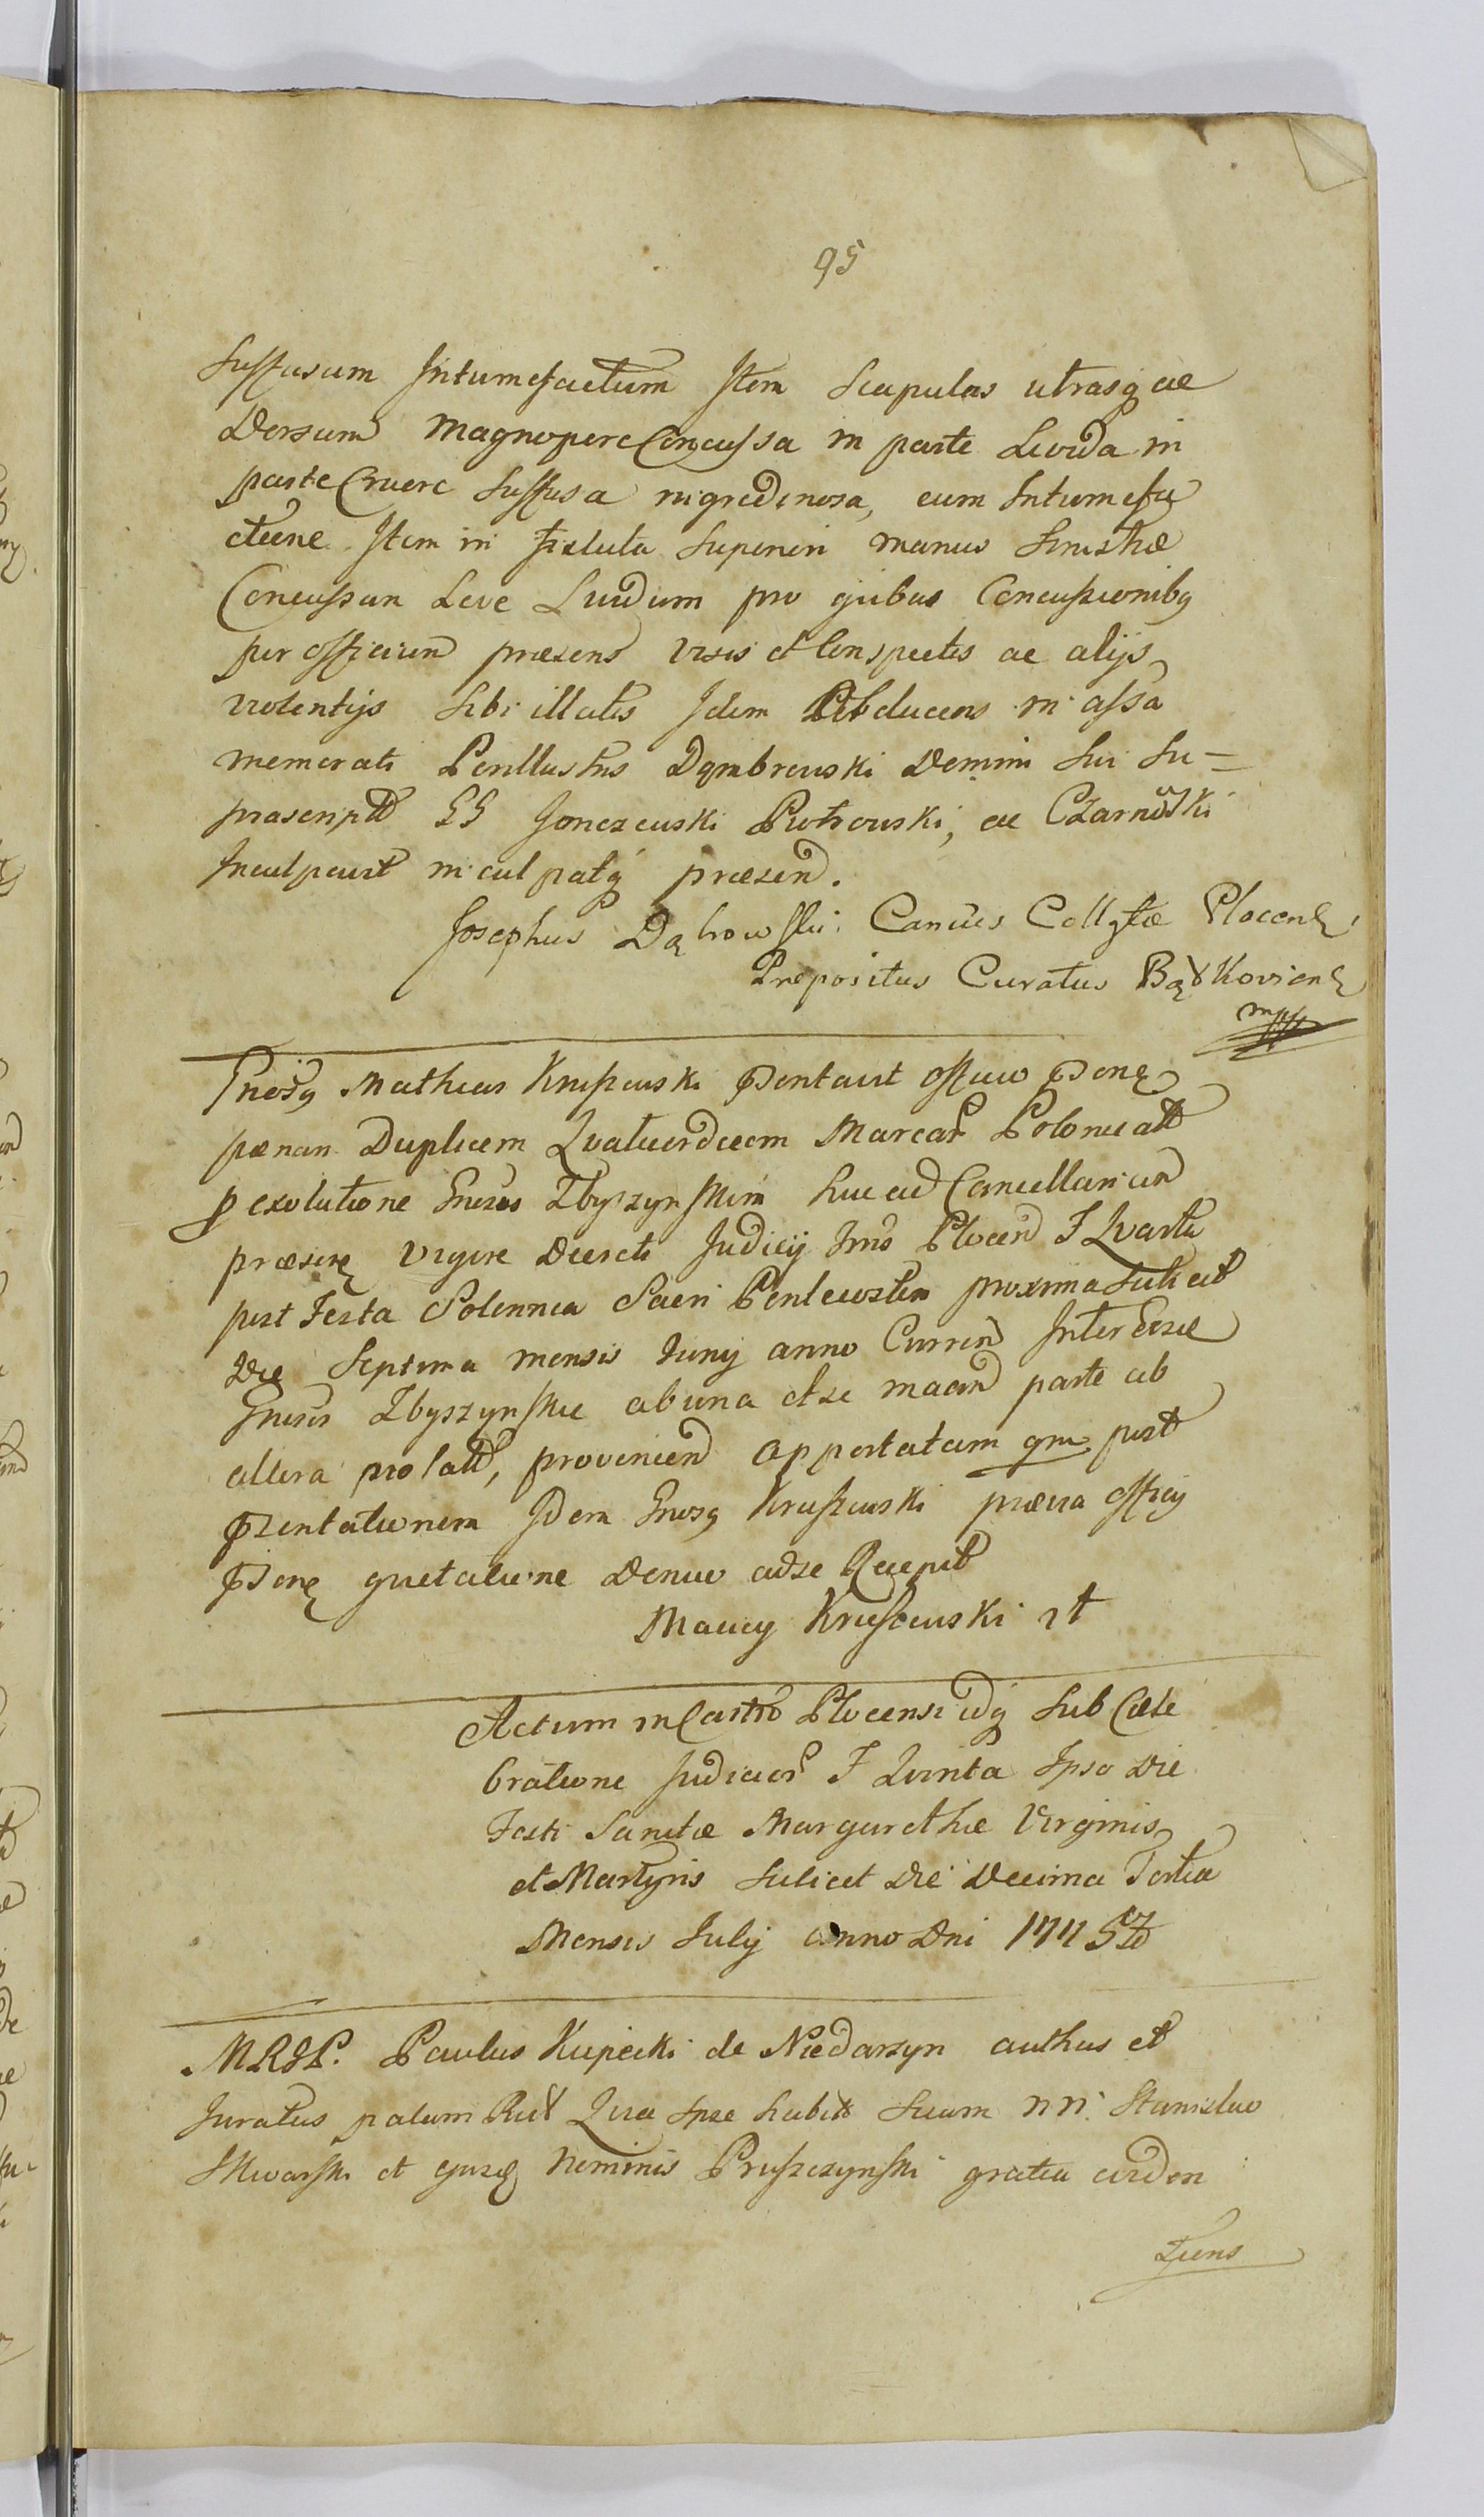 95
Suffusum Intumefactum Item Scapulas utrasq ae
Dorsum magnopere Concussa in parte Livida in
parte Cruore Suffusa nigredinosa, cum Intumefa
ctione Item in Fistula Superiori manus Sinistræ
Concussum Leve Lividum pro quibus Concussionibq
per officium præsens visis et Conspectis ac alijs
violentijs Sibi illatis Idem deducens in assa
memorati Perillustris Dąmbrowski Domini Sui Su=
prascriptt GG Jonczewski Piotrowski, ac Czarnowski
Inculpavit inculpatq præsend.
Josephus Dąbrowski Canĉus Collgtæ Plocenę
Prepositus Curatus Bądkovienę
mpp
Gnosq Mathias Kruszewski Psentavit offuio Psenę
pænam Duplicem Quatuordecim Marcar Polonicatt
p exolutione Gnosos Zbyszynskim huc ad Cancellariam
præsenę vigore Decreti Judicij Trris Plocen F Quarta
post Festa Solennia Sacri Pentecosten proxima Scilicet
Die Septima mensis Junij anno Curren Inter Eosde
Gnosos Zbyszynskie ab una et se maan parte ab
altera prolatt, provenien apportatam qm post
Pzentationem Idem Gnosq Kruszewski prævia officij
Psenę quietatione Denuo ad se Recepit
Maciey Kruszewski
Actum in Castro Plocensi idq Sub Cæle
bratione Judicior F Quinta Ipso Die
Festi Sanctæ Margarethæ Virginis
et Martyris Scilicet Die Decima Tertia
Mensis Julij anno Dni 1775to
MRGP. Paulus Kupecki de Niedarzyn authus et
Juratus palam Rcut Quia Ipse habitt Secum nn. Stanislao
Skwarski et ejusdę Nominis Pruszczynski gratia arden